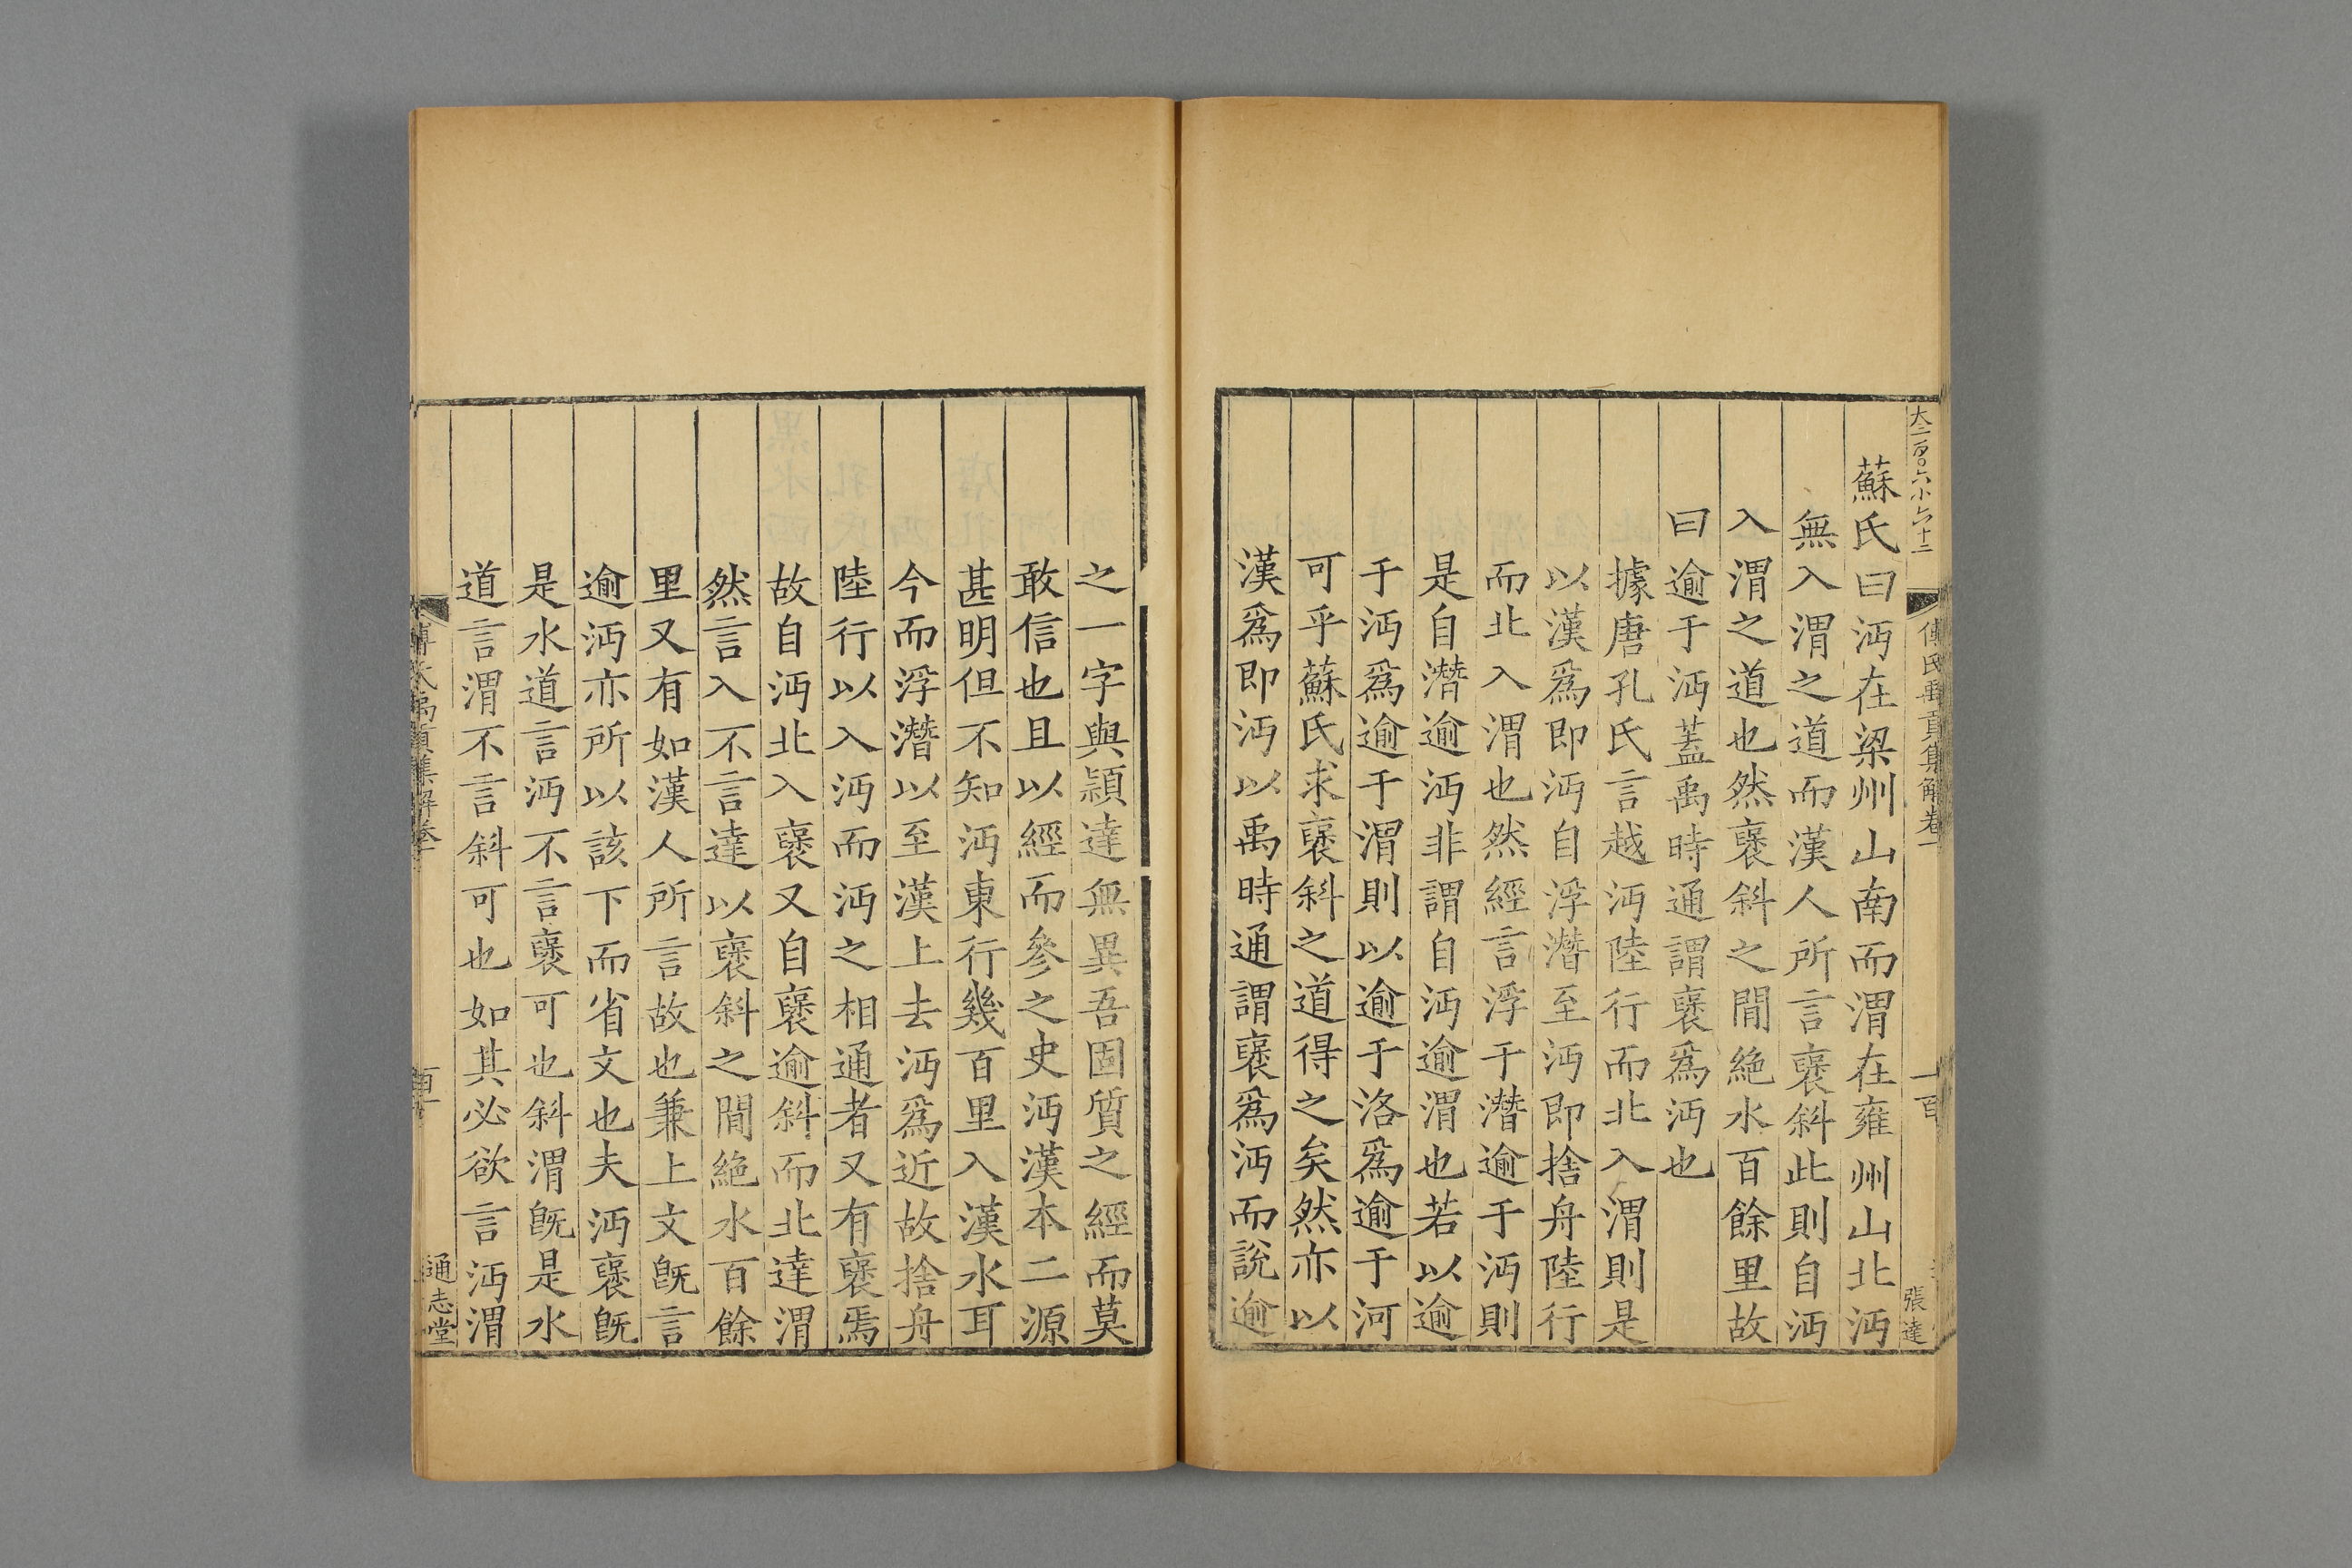 大二百〇六小六十二
傅氏禹貢集解卷一
一百
張達
蘇氏曰沔在梁州山南而渭在雍州山北沔
無入渭之道而漢人所言褒斜此則自沔
入渭之道也然褒斜之間絶水百餘里故
曰逾于沔蓋禹時通謂褒爲沔也
據唐孔氏言越沔陸行而北入渭則是
以漢爲即沔自浮潛至沔即捨舟陸行
而北入渭也然經言浮于潛逾于沔則
是自潛逾沔非謂自沔逾渭也若以逾
于沔爲逾于渭則以逾于洛爲逾于河
可乎蘇氏求褒斜之道得之矣然亦以
漢爲即沔以禹時通謂褒爲沔而說逾
之一字與穎達無異吾固質之經而莫
敢信也且以經而參之史沔漢本二源
甚明但不知沔東行幾百里入漢水耳
今而浮潛以至漢上去沔爲近故捨舟
陸行以入沔而沔之相通者又有褒焉
故自沔北入褒又自褒逾斜而北達渭
然言入不言達以褒斜之間絶水百餘
里又有如漢人所言故也兼上文旣言
逾沔亦所以該下而省文也夫沔褒旣
是水道言沔不言褒可也斜渭旣是水
道言渭不言斜可也如其必欲言沔渭
傅氏禹貢集解卷一
通志堂